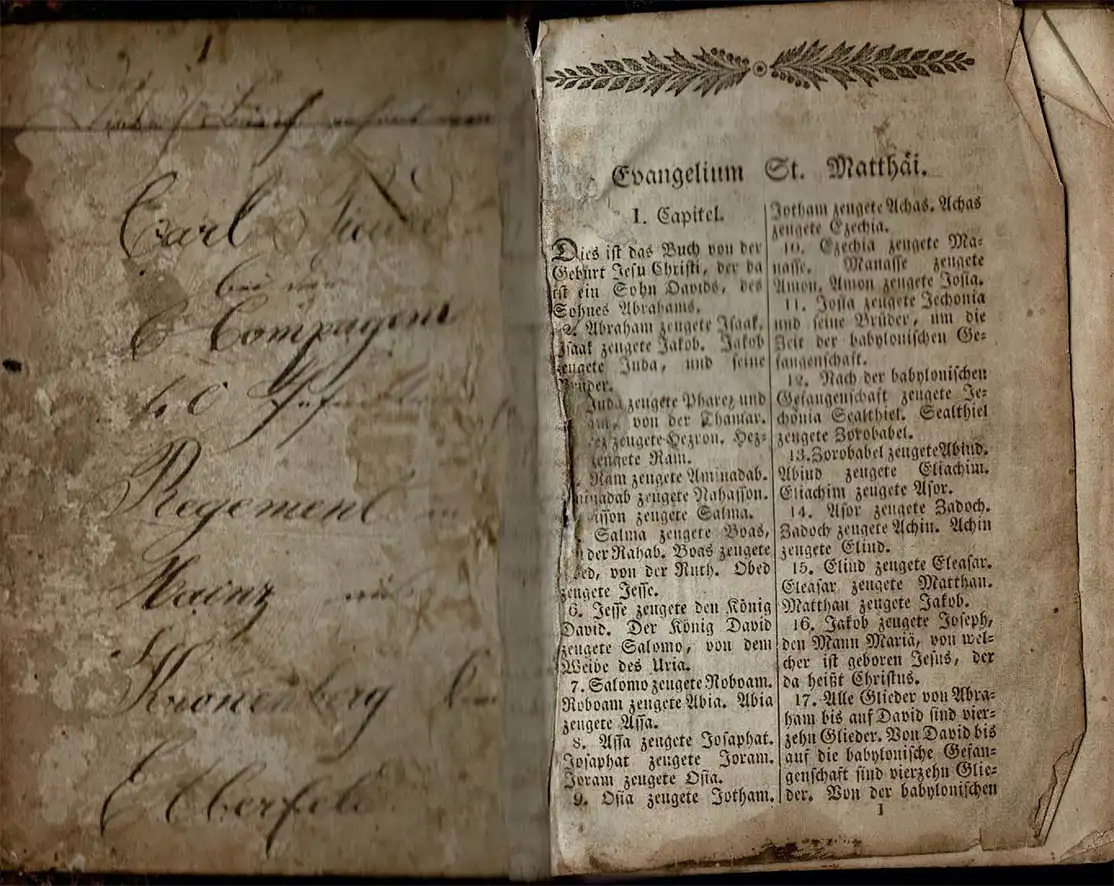 Carl
Compagni
Regement
Mainz
Kronenberg
Elberfeld
Evangelium St. Matthäi.
I. Capitel.
Dies ist das Buch von der
Geburt Jesu Christi, der da
ist ein Sohn Davids, des
Sohnes Abrahams.
2. Abraham zeugete Isaak.
Isaak zeugete Jakob. Jakob
zeugete Juda, und seine
Brüder.
Juda zeugete Pharez und
von der Thamar.
zeugete Hezron. Hez-
zeugete Ram.
Ram zeugete Aminadab.
zeugete Nahasson.
zeugete Salma.
Salma zeugete Boas,
der Rahab. Boas zeugete
von der Ruth. Obed
zeugete Jesse.
6. Jesse zeugete den König
David. Der König David
zeugete Salomo, von dem
Weibe des Uria.
7. Salomo zeugete Roboam.
Roboam zeugete Abia. Abia
zeugete Assa.
8. Assa zeugete Josaphat.
Josaphat zeugete Joram.
Joram zeugete Osia.
9. Osia zeugete Jotham.
Jotham zeugete Achas. Achas
zeugete Ezechia.
10. Ezechia zeugete Ma-
nasse. Manasse zeugete
Amon. Amon zeugete Josia.
11. Josia zeugete Jechonia
und seine Brüder, um die
Zeit der babylonischen Ge-
fangenschaft.
12. Nach der babylonischen
Gefangenschaft zeugete Je-
chonia Sealthiel. Sealthiel
zeugete Zorobabel.
13. Zorobabel zeugete Abiud.
Abiud zeugete Eliachim.
Eliachim zeugete Asor.
14. Asor zeugete Zadoch.
Zadoch zeugete Achin. Achin
zeugete Eliud.
15. Eliud zeugete Eleasar.
Eleasar zeugete Matthan.
Matthan zeugete Jakob.
16. Jakob zeugete Joseph,
den Mann Mariä, von wel-
cher ist geboren Jesus, der
da heißt Christus.
17. Alle Glieder von Abra-
ham bis auf David sind vier-
zehn Glieder. Von David bis
auf die babylonische Gefan-
genschaft sind vierzehn Glie-
der. Von der babylonischen
1